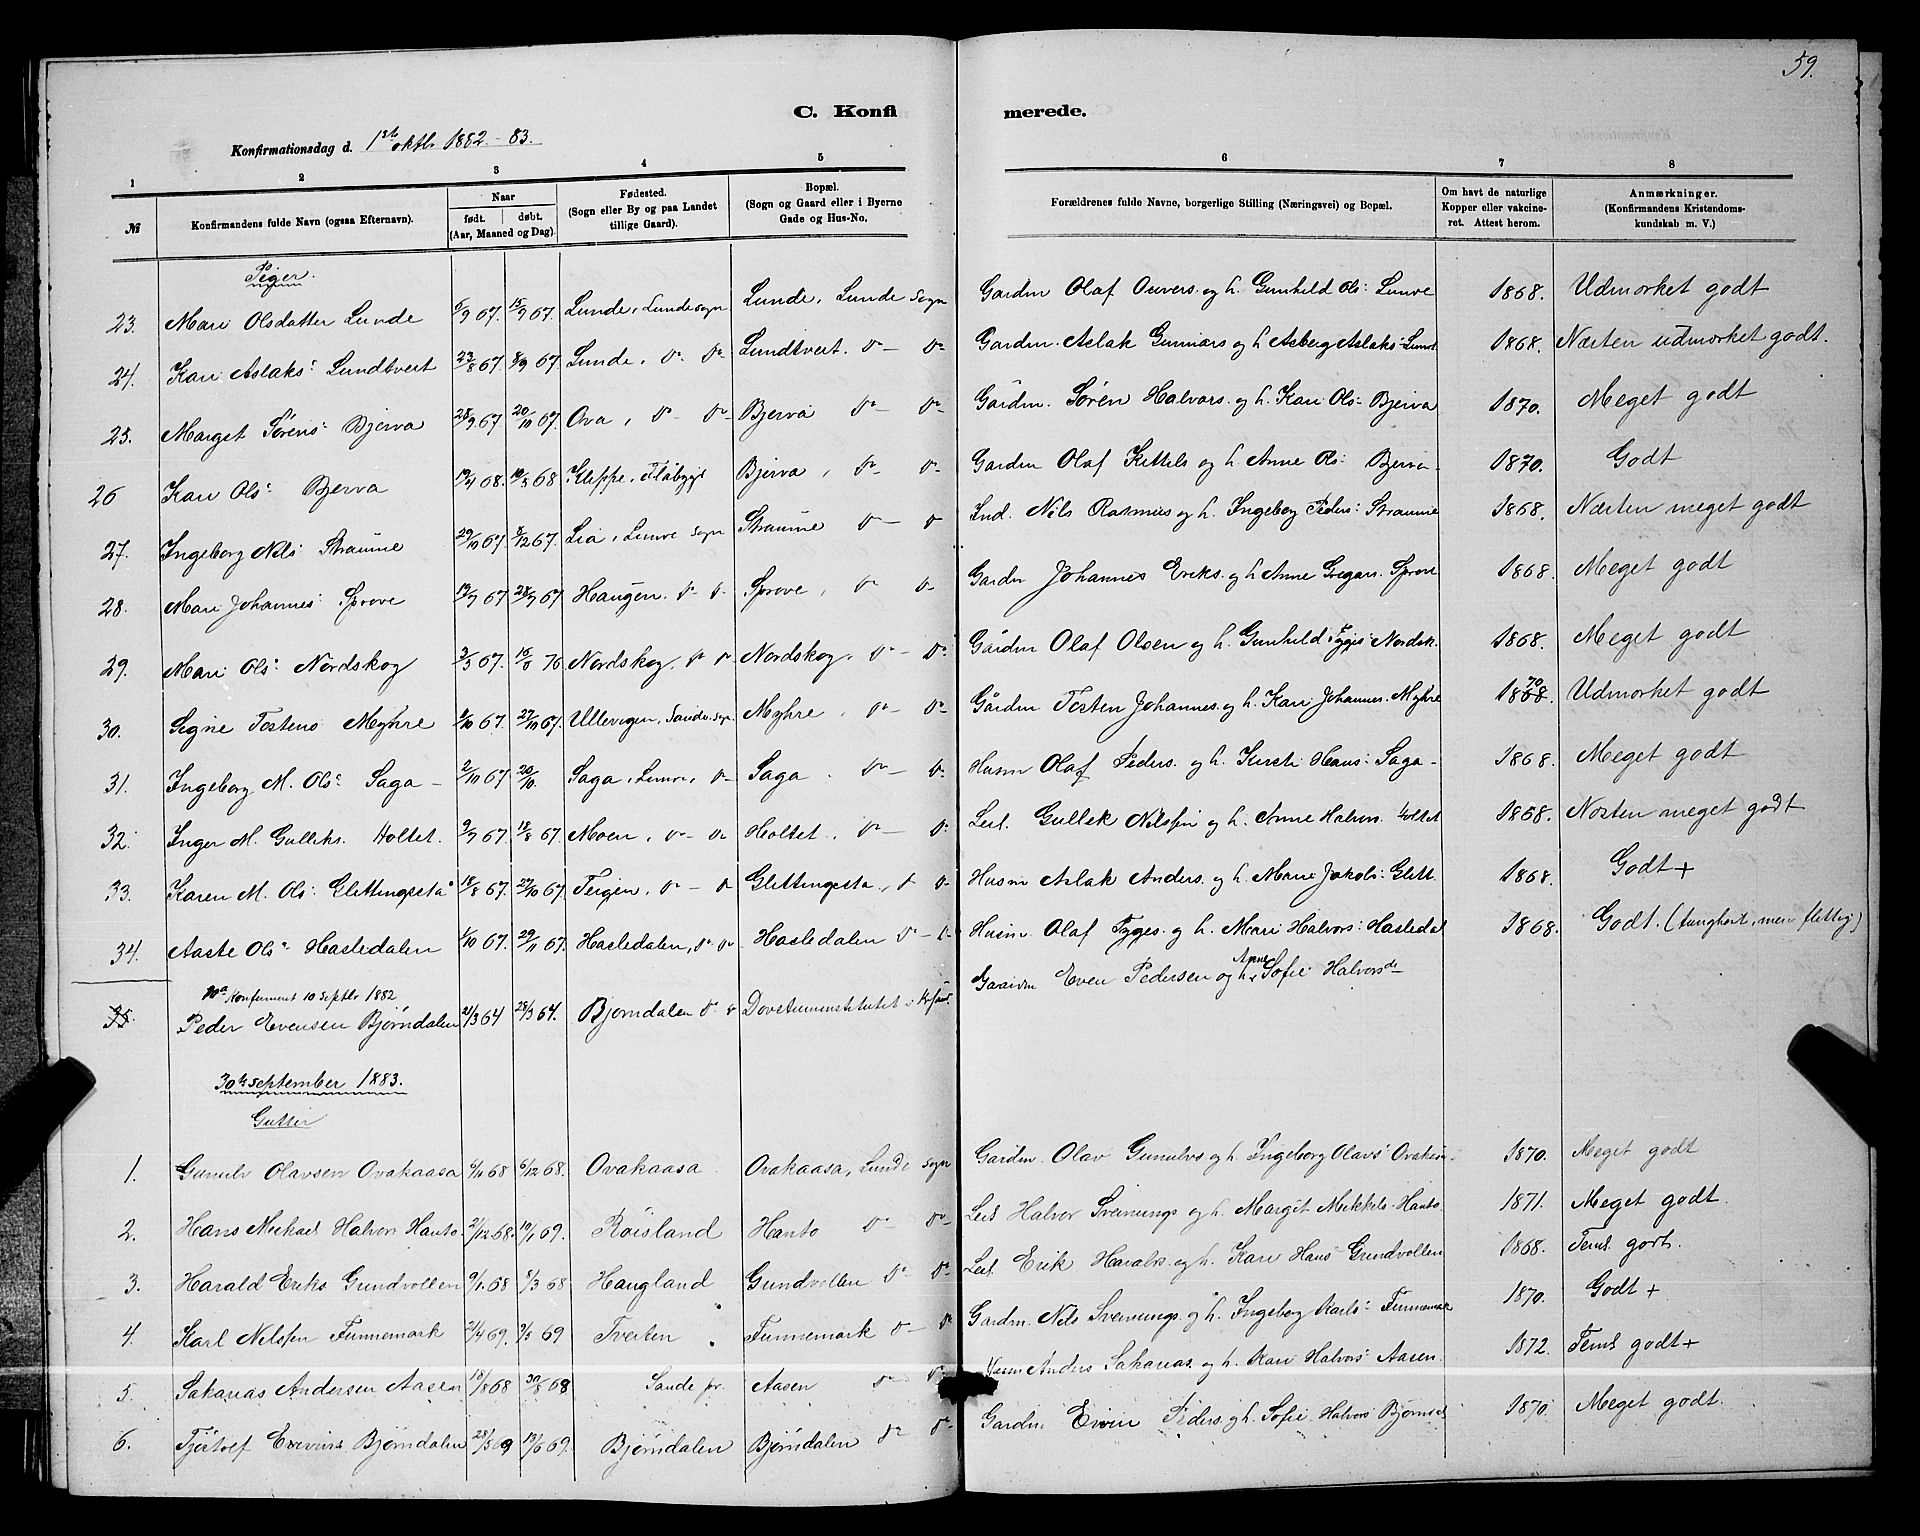 59.
C. Konfirmerede.
Konfirmationsdag d. 1ste oktbr 1882-83.
1 2 3 4 5 6 7 8
№ Konfirmandens fulde Navn (ogsaa Efternavn). Naar født. døbt. (Aar, Maaned og Dag). Fødested. (Sogn eller By og paa Landet tillige Gaard). Bopæl. (Sogn og Gaard eller i Byerne Gade og Hus-No. Forældrenes fulde Navne, borgerlige Stilling (Næringsvei) og Bopæl. Om havt de naturlige Kopper eller vakcineret. Attest herom. Anmærkninger. (Konfirmandens Kristendomskundskab m. V.)
Piger.
23. Mari Olsdatter Lunde 5/9 67. 15/9 67. Lunde, Lunde sogn Lunde, Lunde sogn Gårdm Olaf Ouvers. og h. Gunhild Ols: Lunde 1868. Udmørket godt
24. Kari Aslaks: Lundtvert 23/8 67. 8/9 67 Lunde, do do Lundtvert. do do Gårdm. Aslak Gunnars og h Asberg Aslaks: Lundt 1868. Næsten udmørket godt.
25. Marget Sørens: Bjerva 28/9 67. 20/10 67. Ova, do do Bjerva do do Gårdm. Søren Halvors. og h. Kari Ols: Bjerva 1870. Meget godt
26 Kari Ols: Bjerva 17/4 68. 10/5 68 Kleppe, Flåbygd Bjerva, do do Gårdm Olaf Kittils og h. Anne Ols: Bjerva 1870. Godt
27. Ingeborg Nils: Straume 29/10 67. 8/12 67. Lia, Lunde sogn Straume do do Ind. Nils Rasmus og h. Ingeborg Peders: Straume 1868. Næsten meget godt
28. Mari Johannes: Sprove 17/9 67 28/9 67 Haugen. do do Sprove, do do Gårdm Johannes Eriks. og h Anne Gregars. Sprove 1868. Meget godt
29. Mari Ols: Nordskog 2/3 67. 16/ 70 Nordskog. do do Nordskog. do do Gårdm Olaf Olsen og h. Gunhild Tyges: Nordsk. 1868. Meget godt
30. Signe Tostens Myhre 1/10 67. 27/10 67. Ullevigen, Sande sogn Myhre, do do Gårdm Tosten Johannes. og h. Kari Johannes. Myhre 1868. 70 Udmørket godt
31. Ingeborg M. Ols: Saga 2/10 67 20/10. Saga, Lunde, do Saga. do do Husm Olaf Peders. og h. Kirsti Hans: Saga 1868. Meget godt
32. Inger M. Gulleks. Holtet. 9/7 67. 18/8 67. Moen, do do Holtet, do do Leil. Gullek Nilssen og h. Anne Halvors. Holtet 1868. Næsten meget godt
33. Karen M. Ols: Glittingsstad 18/8 67. 27/10 67. Teigen, do do Glittingsta, do do Husm Aslak Anders. og h. Marie Jakobs: Glitt. 1868. Godt +
34. Aaste Ols: Hasledalen 1/10 67. 29/11 67. Hasledalen, do do Hasledalen do do Husm Olaf Tyges. og h. Mari Halvors: Hasledal 1868. Godt. (tunghørt, men flittig)
Konfirmeret 10 Septbr 1882
35. Peder Evensen Bjørndalen 21/3 64 28/3 64. Bjørndalen do Døvstummeinstitutet Gaardm Even Pedersen og h. Anne Sofie Halvorsdr
30te september 1883.
Gutter
1. Gunulv Olavsen Ovakaasa 9/11 68 6/12 68. Ovakaasa. Ovakaasa, Lunde sogn Gårdm. Olav Gunulvs og h. Ingeborg Olavs: Ovakaasa 1870. Meget godt
2. Hans Mickael Halvors Hanto 2/12 68. 10/1 69. Røisland Hanto do do Leil Halvor Sveinungs og h. Margit Mikkels. Hanto. 1871. Meget godt.
3. Harald Eriks Gundvollen 9/1 68 8/3 68 Haugland Gundvollen do do Leil. Erik Haralds. og h. Kari Hans: Gundvollen 1868. Teml. godt.
4. Karl Nilssen Funnemark 21/4 69. 9/5 69 Tverten Funnemark do do Gårdm. Nils Sveinungs. og h. Ingeborg Karls: Funnemark 1870. Godt +
5. Sakarias Andersen Aasen 18/8 68 30/8 68 Sande pr. Aasen do do Husm Anders Sakarias. og h. Kari Halvors: Aasen. 1872. Teml godt +
6. Tjøstolf Evens Bjørndalen 28/5 69 13/6 69. Bjørndalen Bjørndalen do do Gårdm. Even Peders. og h. Sofie Halvors: Bjørnd. 1870. Meget godt.